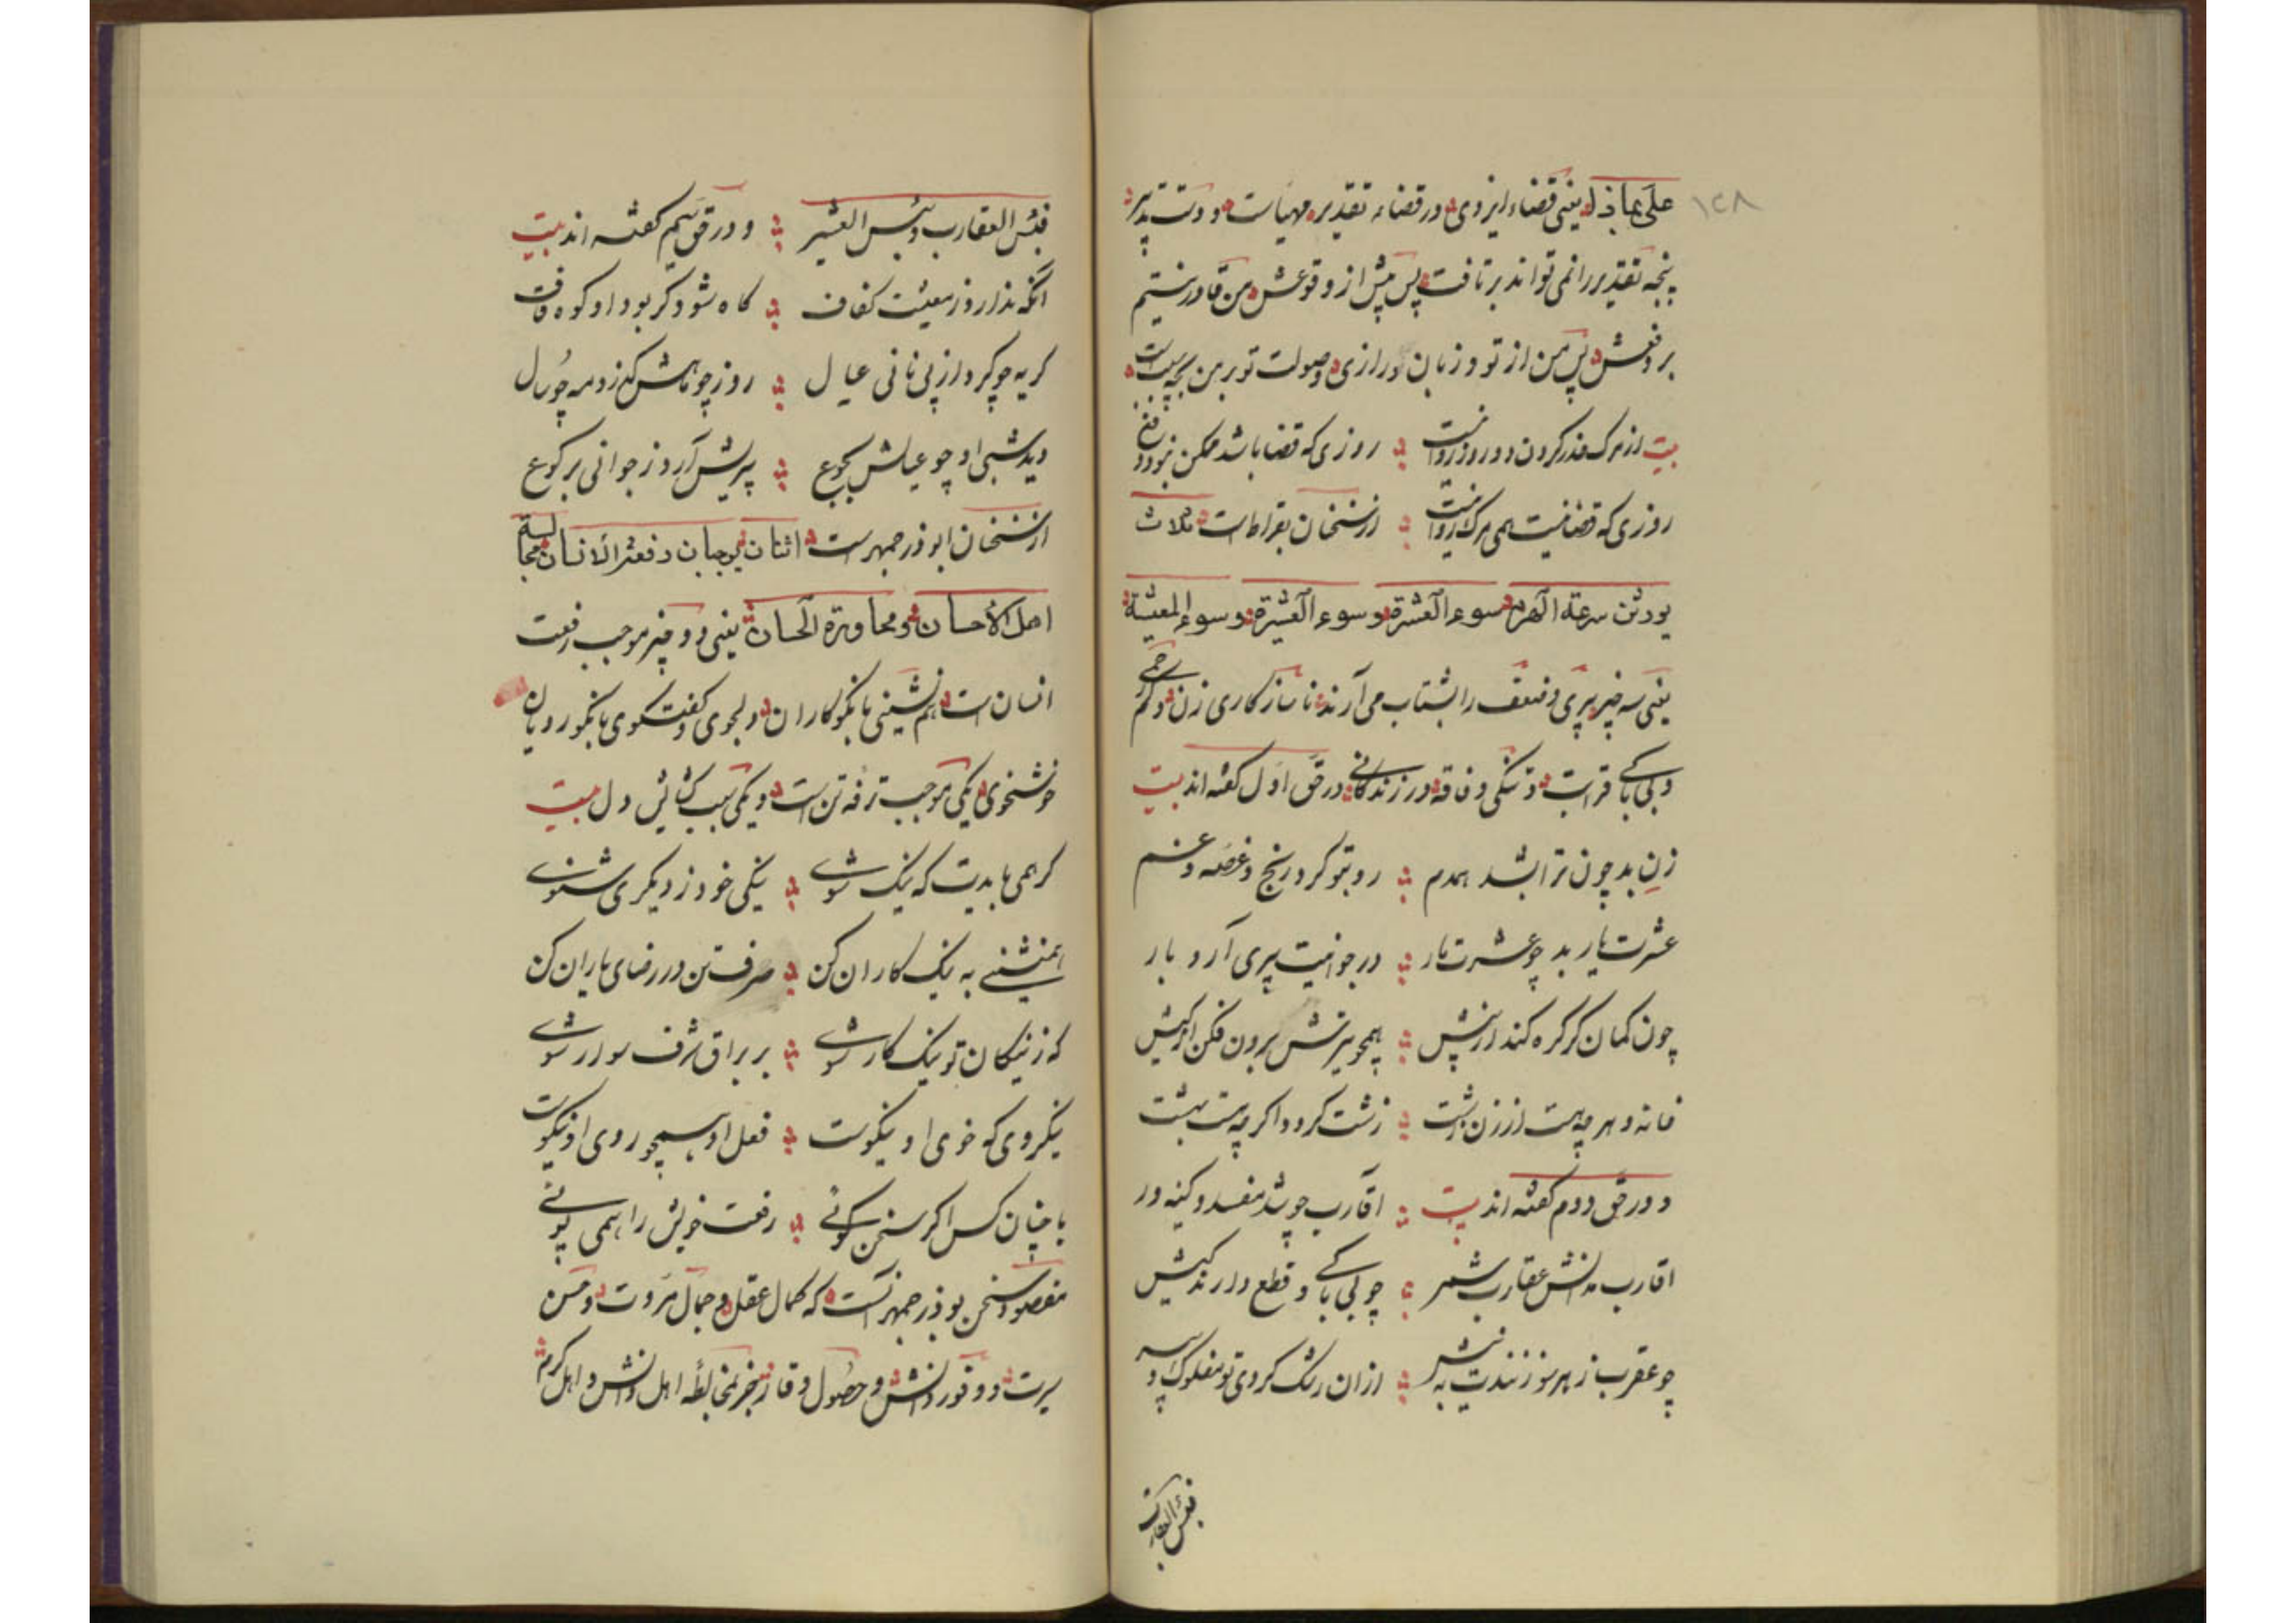 ۱۲۸
علی ماذا یعنی قضاء ایزدی در قضاء تقدیر مهیاست و دست تدبیر
پنجه تقدیر را نمی تواند برتافت پس پیش از وقوعش من قادر نیستم
بر دفعش پس من از تو و زبان درازی و صولت تو بر من بجهٔ چیست
بیت از مرک حذر کردن دو روز روا نیست روزی که قضا باشد ممکن نبود دفع
روزی که قضا نیست همی مرک روا نیست از سخنان بقراط است ثلاث
یورثن سرعة الهرم سوء العشرة و سوء العشیرة و سوء المعیشة
یعنی سه چیز پیری و ضعف را بشتاب می آرند ناسازکاری زن و کم رحمی
و بی باکی قرابت و تنکی و فاقه در زندکانی در حق اول کفته اند بیت
زن بد چون ترا باشد همدم رو بتو کرد رنج و غصه و غم
عشرت یار بد چو عشرت مار در جوانیت پیری آرد بار
چون کمان کر کره کند ز پیش همچو تیرش برون فکن از کیش
خانه و هر چه هست از زن زشت زشت کردد اکر چه هست بهشت
و در حق دوم کفته اند بیت اقارب چو شد مفسد و کینه ور
اقارب مدانش عقارب شمر چو بی باکی و قطع دارند کیش
چو عقرب ز هر سو زنندت به نیش
فبئس العقارب
فبئس العقارب و بئس العشیر و در حق سیم کفته اند بیت
آنکه ندارد ز معیشت کفاف کاه شود کر بود او کوه قاف
کریه چو کرد از پی نانی عیال
دید شبی او چو عیالش بجوع پیریش آرد ز جوانی برکوع
از سخنان ابوذرجمهر است اثنان یوجبان رفعة الانسان مجالسة
اهل الاحسان و محاورة الحسان یعنی دو چیز موجب رفعت
انسان است هم نشینی با نکوکاران و دلجوی و کفتکوی با نکورویان
خوشخوی یکی موجب ترفه تن است و یکی سبب کشایش دل بیت
کر همی بایدت که نیک شوی نیکی خود ز دیکری شنوی
همنشینی به نیک کاران کن صرف تن در رضای یاران کن
که ز نیکان تو نیک کار شوی بر براق شرف سوار شوی
نیکروی که خوی او نیکوست فعل او همچو روی او نیکوست
با چنان کس اکر سخن کوئی رفعت خویش را همی پوئی
مقصود سخن بوذرجمهر آنست که کمال عقل و جمال مروت و حسن
سیرت و وفور دانش و حصول وقار بجز مخالطهٔ اهل دانش و اهل کرم